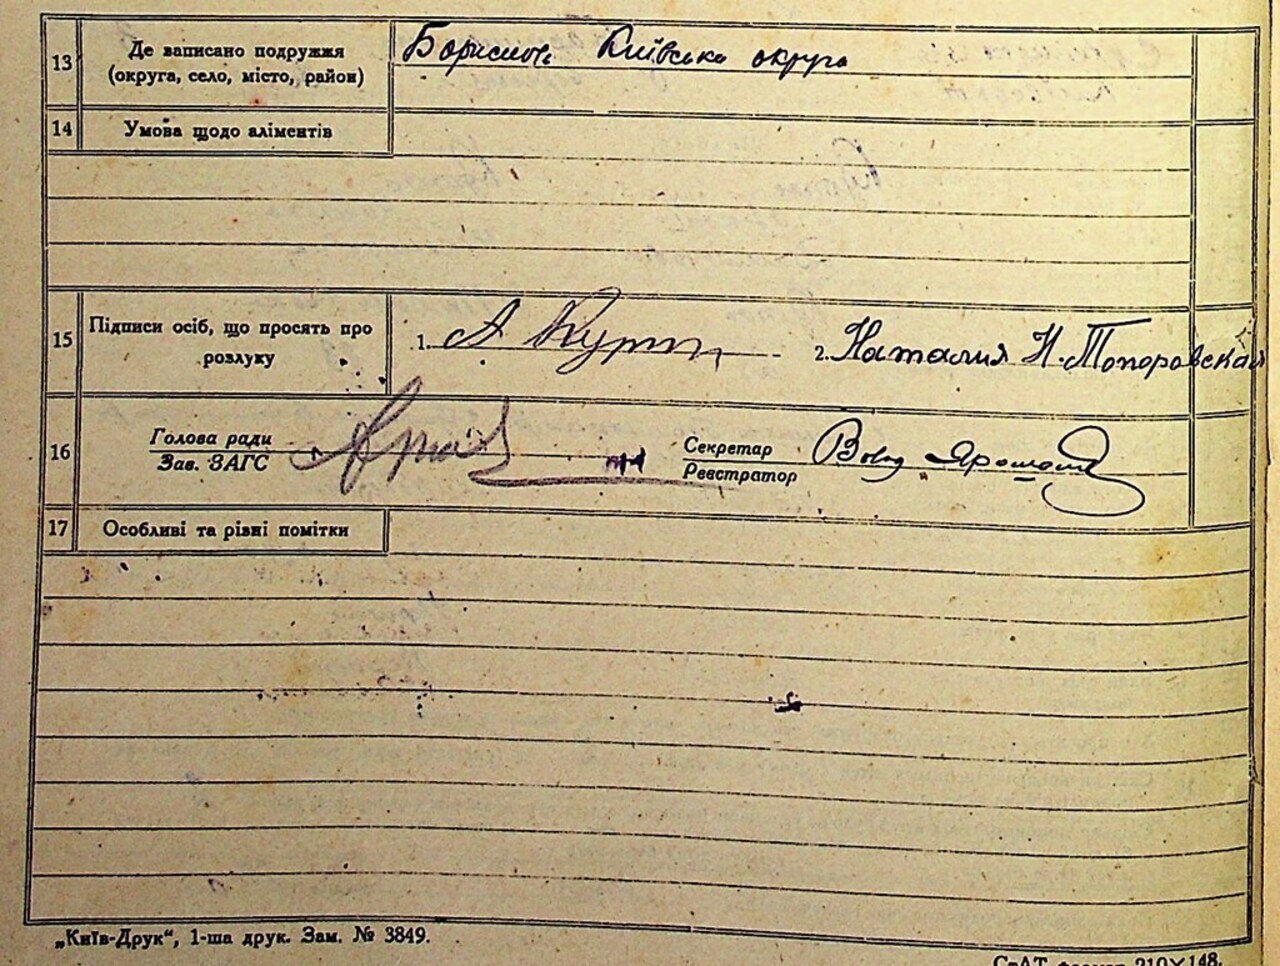 13
Де записано подружжя
(округа, село, місто, район)
Київська округа
14
Умова щодо аліментів
15
Підписи осіб, що просять про
розлуку
1. А. 2. Наталия Н. Топоровская
16
Голова ради
Зав. ЗАГС
Секретар
Реєстратор
17
Особливі та різні помітки
„Київ-Друк“, 1-ша друк. Зам. № 3849.
формат 210×148.